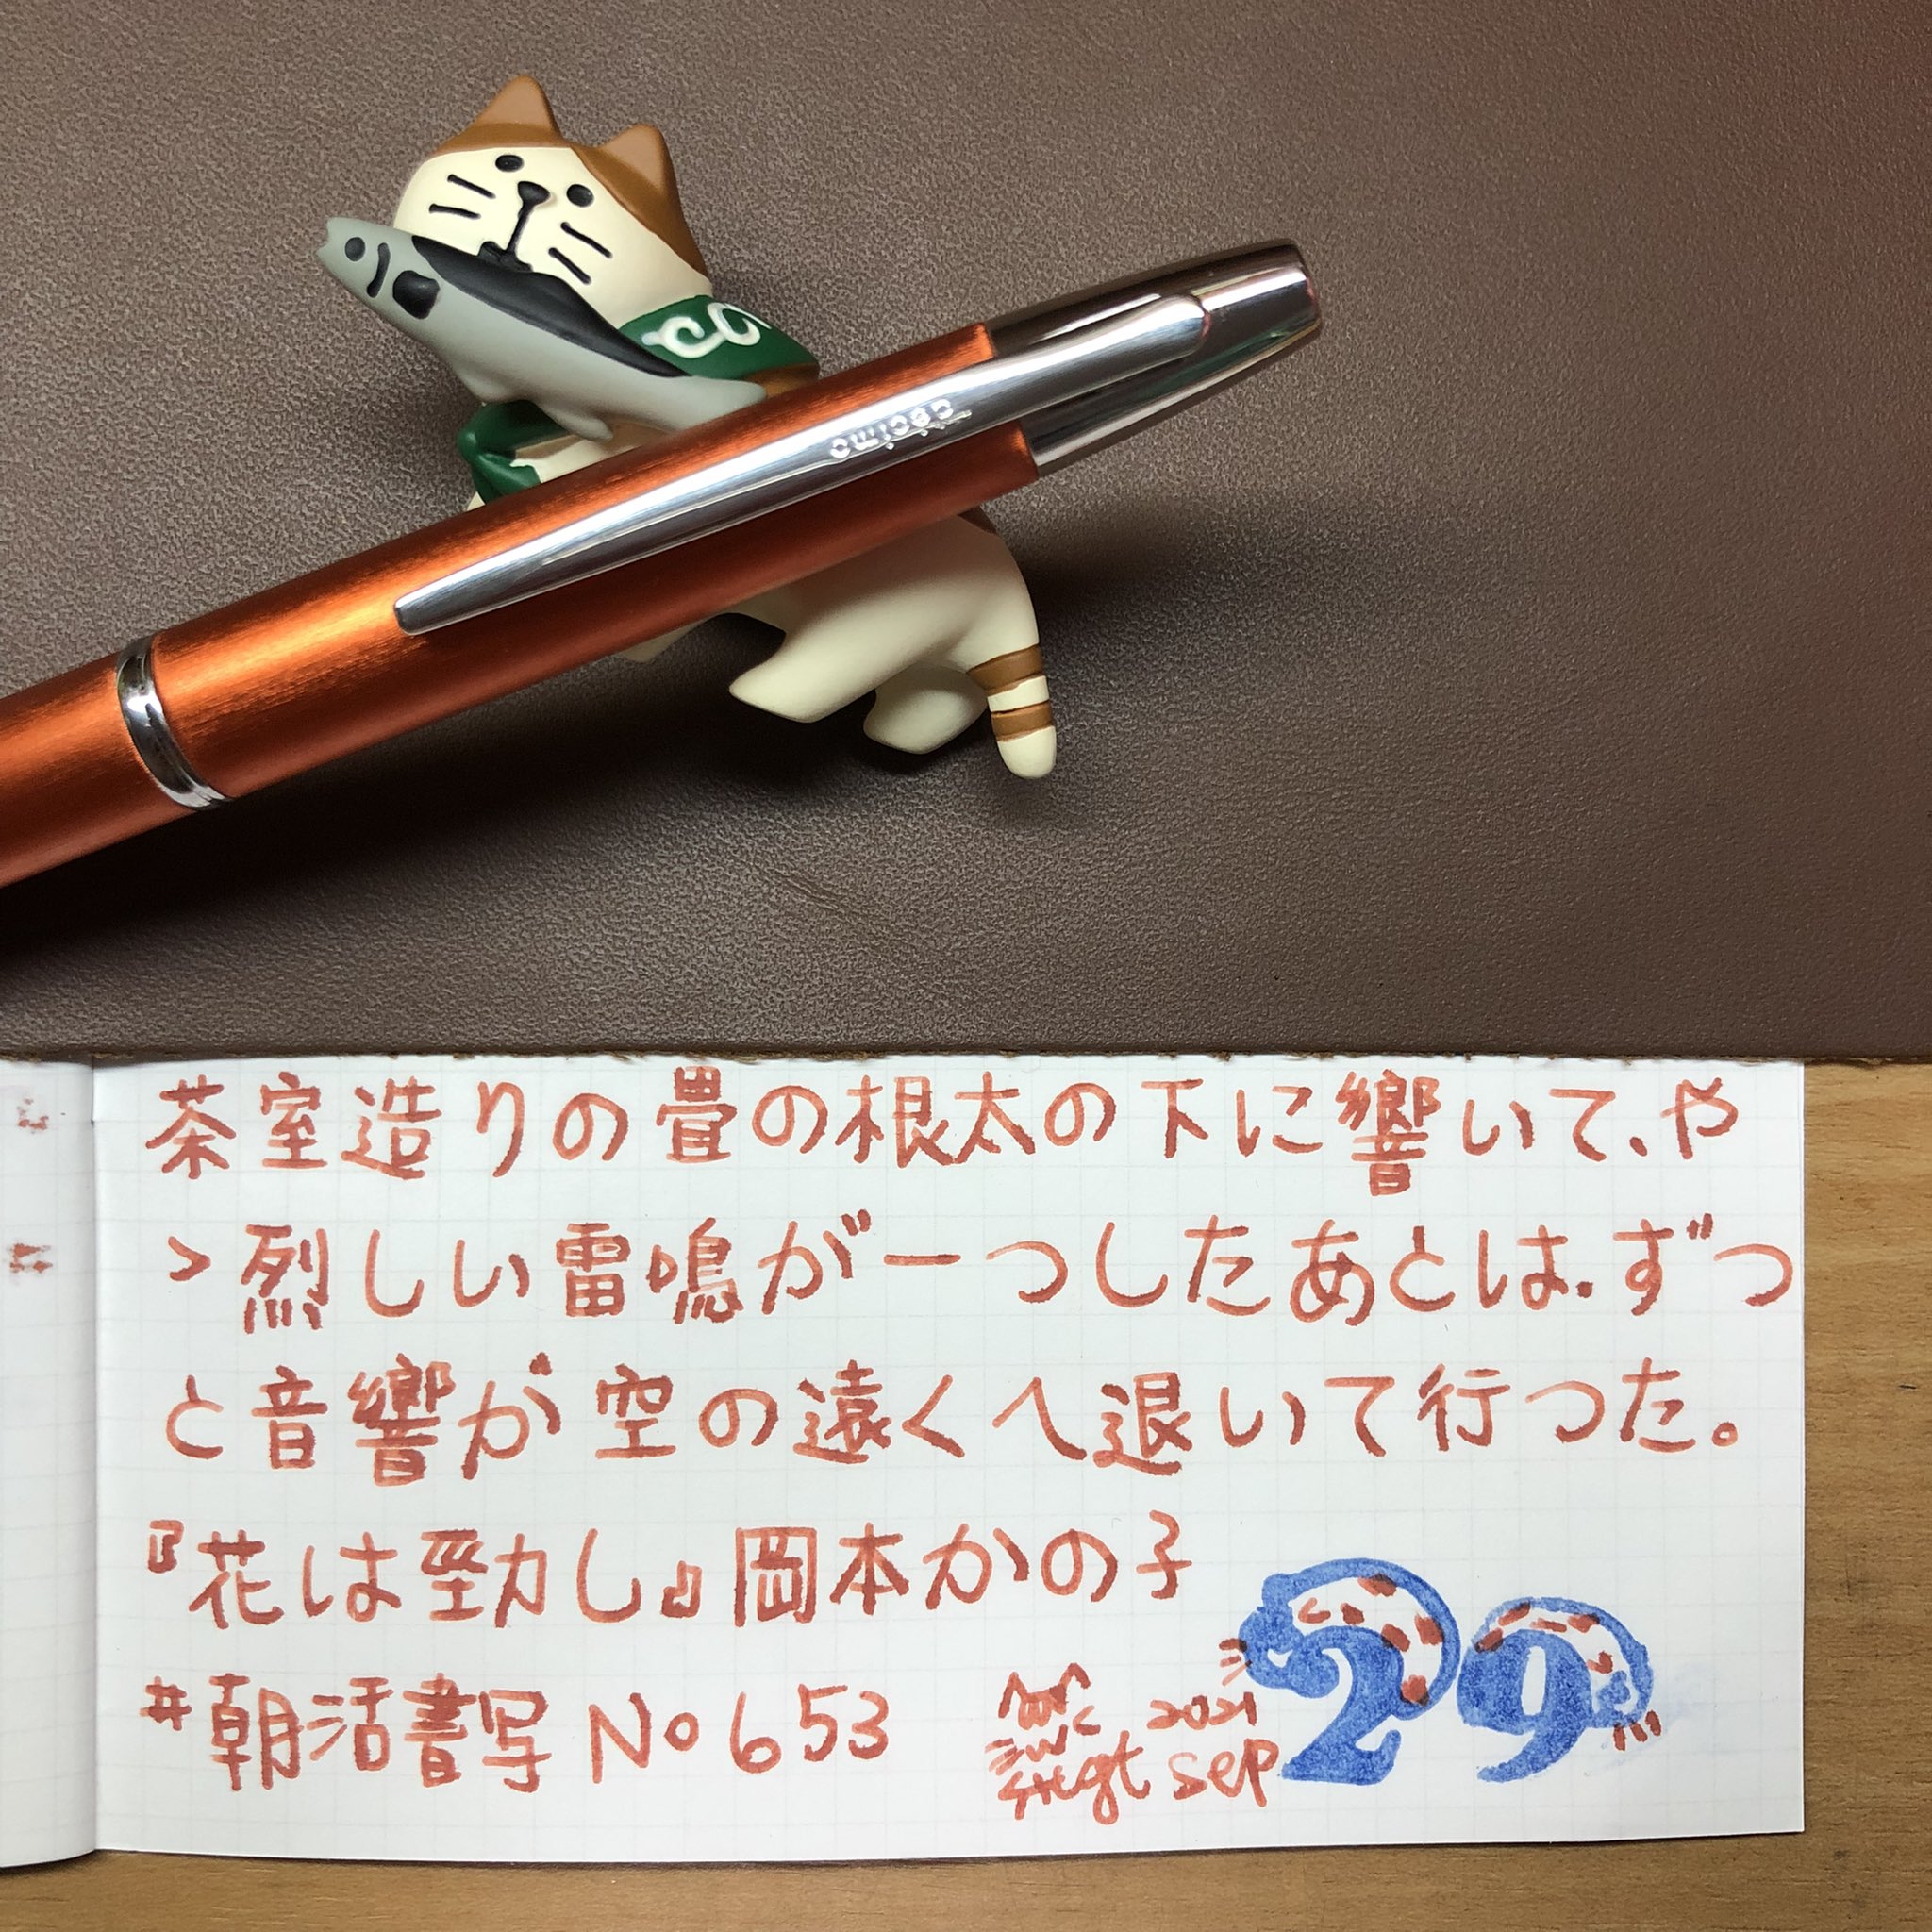 茶室造りの畳の根太の下に響いて、や
ゝ烈しい雷鳴が一つしたあとは、ずつ
と音響が空の遠くへ退いて行つた。
『花は勁し』岡本かの子
#朝活書写 No 653
2021
sep 29